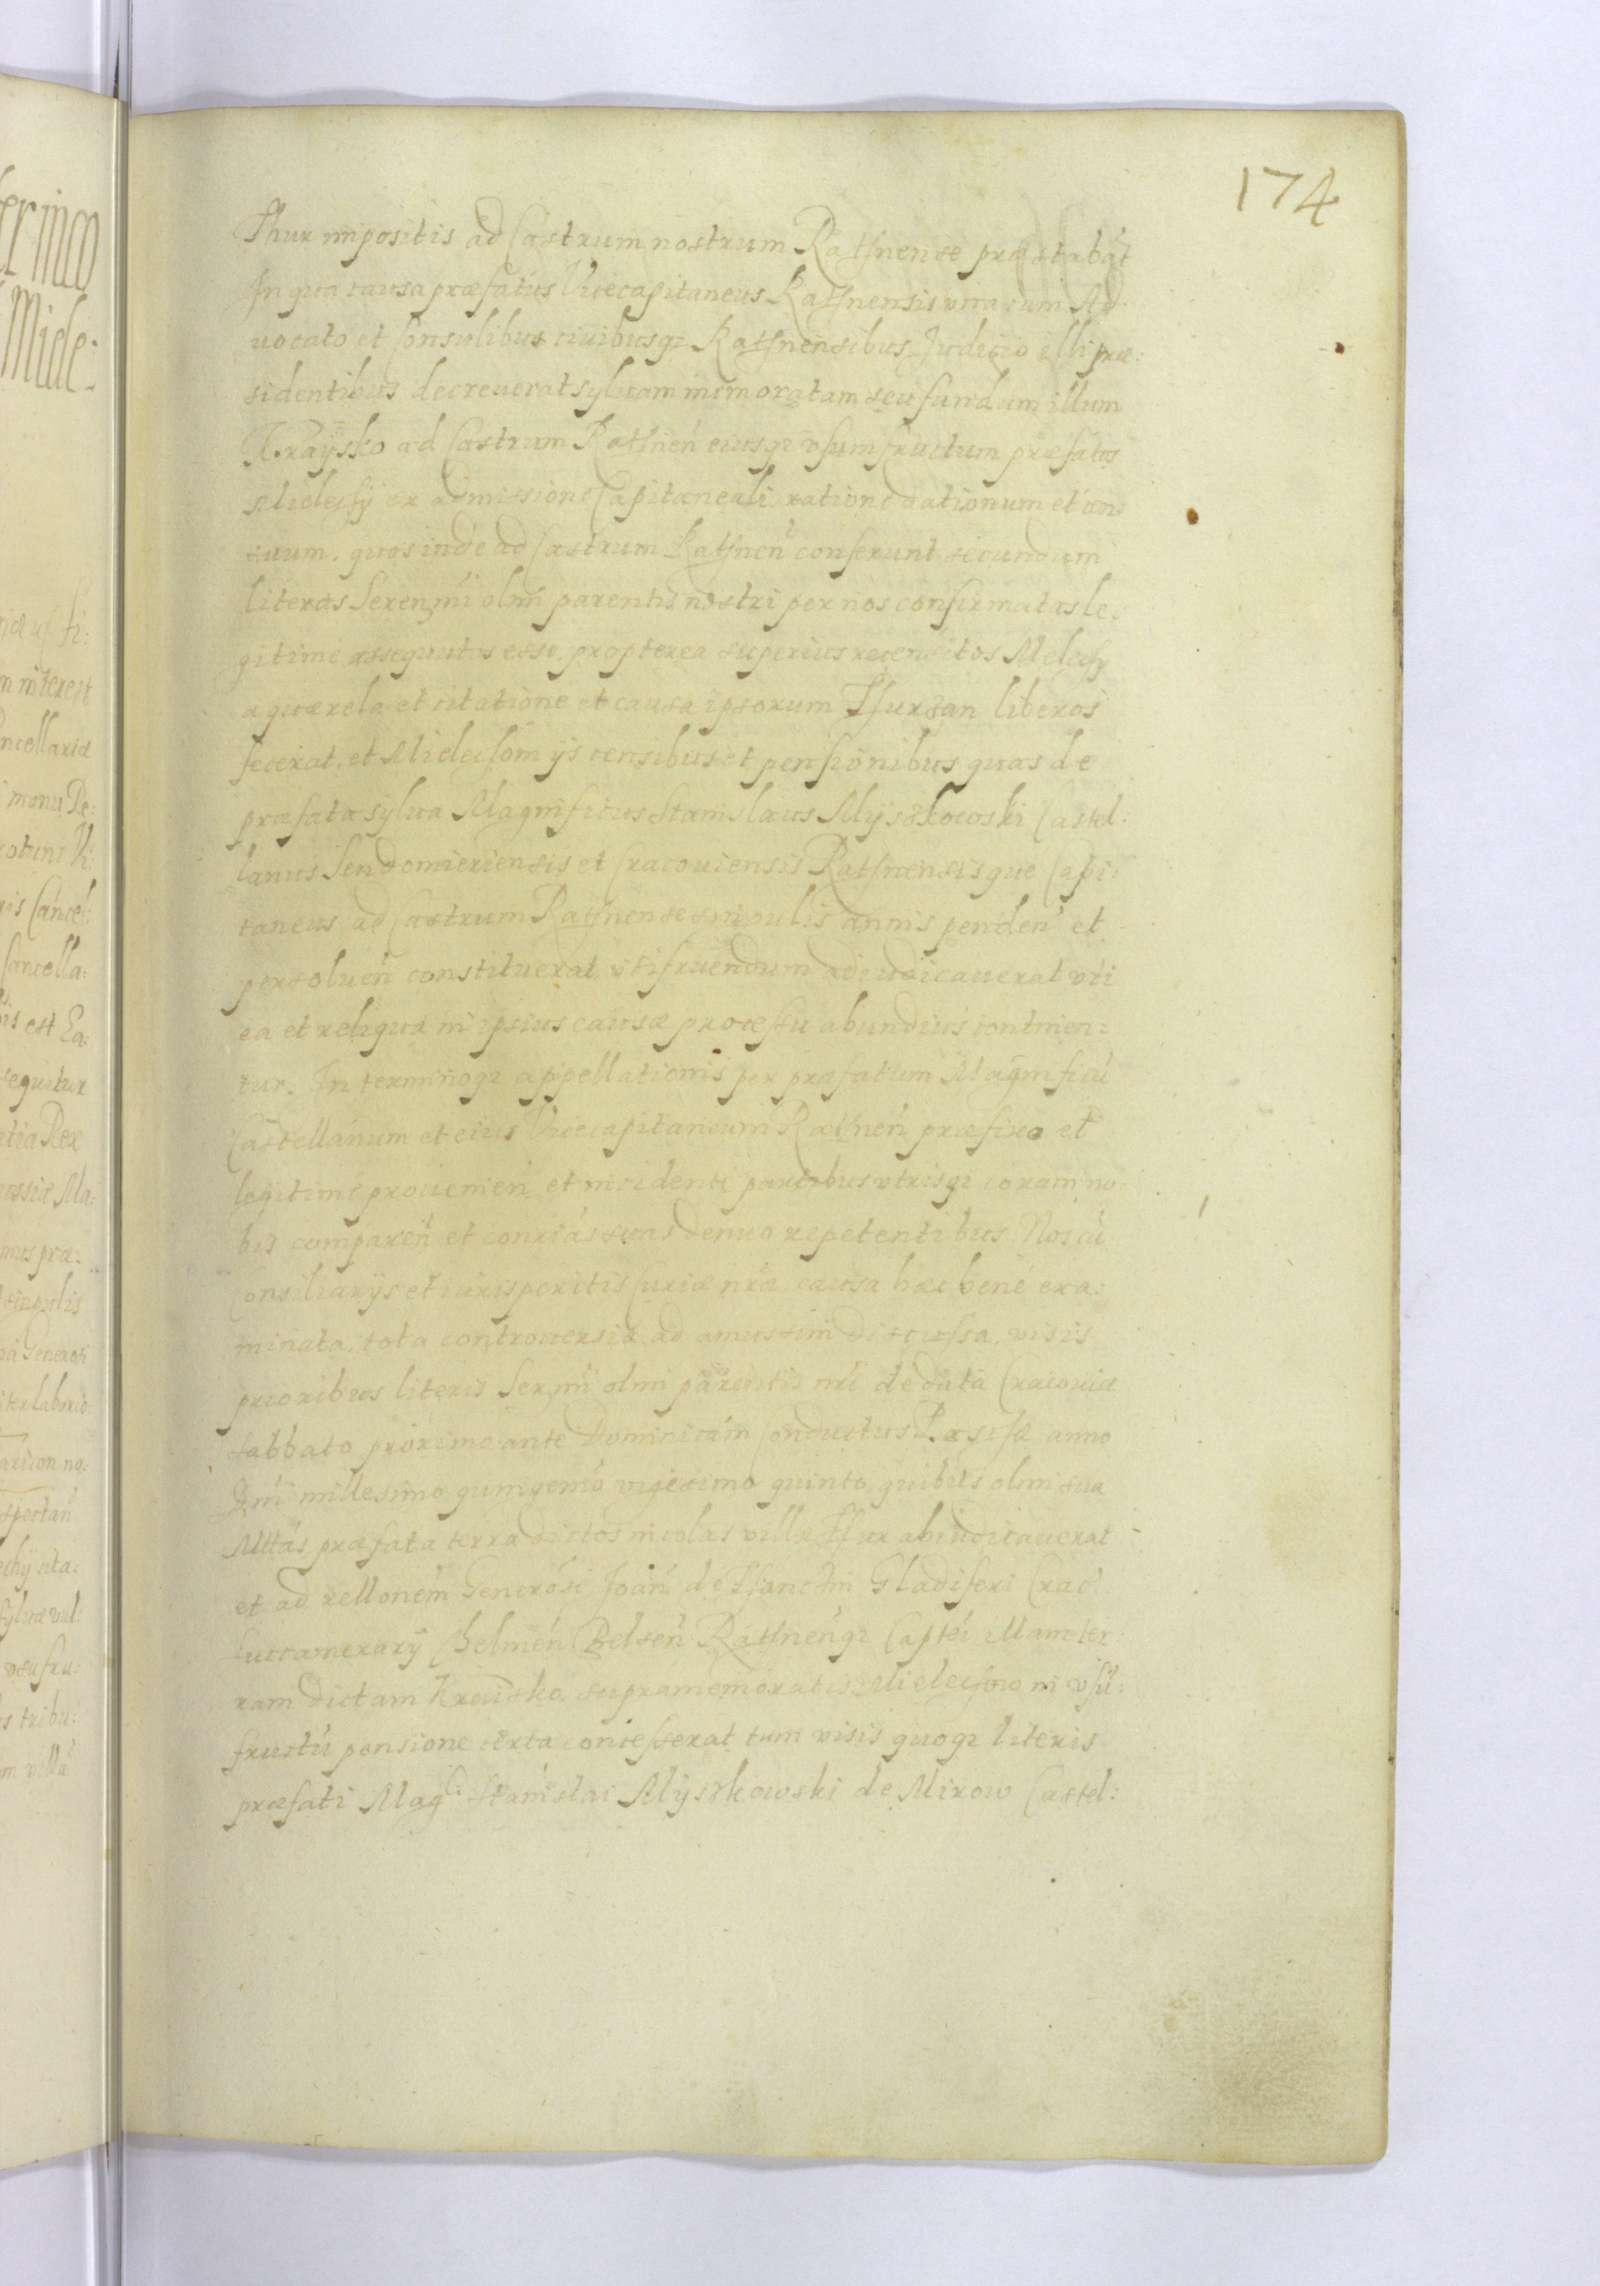 174
Thur impositis ad Castrum nostrum Rathnense præstabat
In qua causa præfatus Vicecapitaneus Rathnensis vna cum Ad
uocato et Consulibus ciuibusq3 Rathnensibus Judicio illi præ:
sidentibus decreuerat syluam memoratam seu fundum illum
Kraÿsko ad Castrum Rathnen eiusq3 vsumfructum præfatos
Mielechy ex admissione Capitaneali ratione dationum et cen:
suum, quos inde ad Castrum Rathnen conferunt secundum
literas Serenmi olim parentis nostri per nos confirmatas le:
gitime assequutos esse, propterea superius recensitos Melechy
a quærela et citatione et causa ipsorum Thurzan liberos
fecerat, et Mielechom ijs censibus et pensionibus quas de
præfata sylua Magnificus Stanislaus Mÿszkowski Castel:
lanus Sendomieriensis et Cracouiensis Rathnensisque Capi:
taneus ad Castrum Rathnense singulis annis penden et
persoluen constituerat vtifruendum adiudicauerat vti
ea et reliqua in ipsius causæ processu abundius continen:
tur. In terminoq3 appellationis per præfatum Magnificu
Castellanum et eius Vicecapitaneum Rathnen præfixo et
legitime prouenien et incidenti partibus vtrisq3 coram no:
bis comparen et contrias suas denuo repetentibus Nos cu
Consiliarijs et iurisperitis Curiæ nræ causa hac bene exa:
minata, tota controuersia ad amussim discussa, visis
prioribus literis Sermi olim parentis nri de data Cracouiæ
sabbato proximo ante Dominicam Conductus Paschæ anno
Dni millesimo quingento vigesimo quinto, quibus olim sua
Mttas præfata terra dictos incolas villæ Thur abiudicauerat
et ad rellonem Generosi Joan de Thanczin Gladiferi Crac
succamerarij Chelmen Belsen Rathnenq3 Captei illam ter:
ram dictam Kraisko supramemoratis Mielechno in vsu:
fructu pensione certa concesserat tum visis quoq3 literis
præfati Magci Stanislai Mÿszkowski de Mirow Castel: